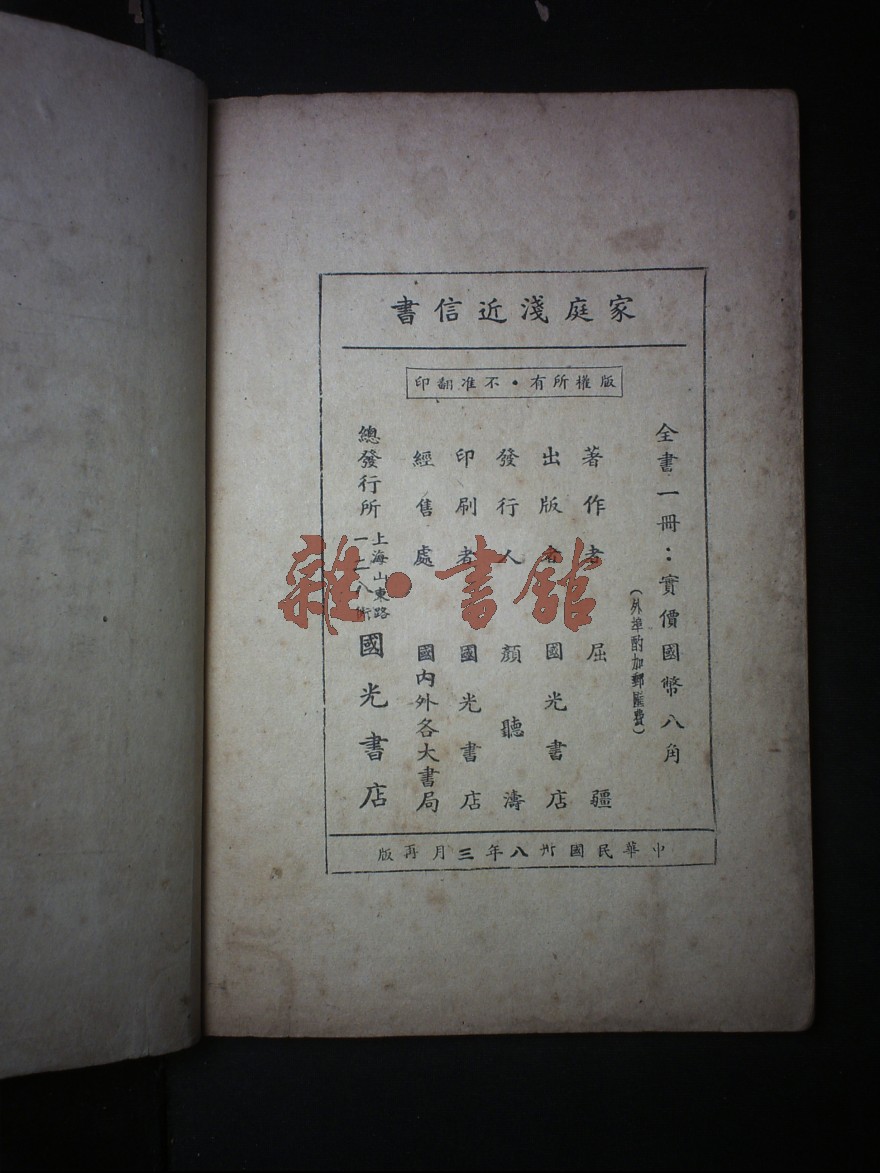 家庭淺近信書
版權所有・不准翻印
全書一冊：實價國幣八角
（外埠酌加郵匯費）
著作者 屈疆
出版者 國光書店
發行人 顏聽濤
印刷者 國光書店
經售處 國內外各大書局
總發行所 上海山東路 國光書店
中華民國卅八年三月再版
雜・書館